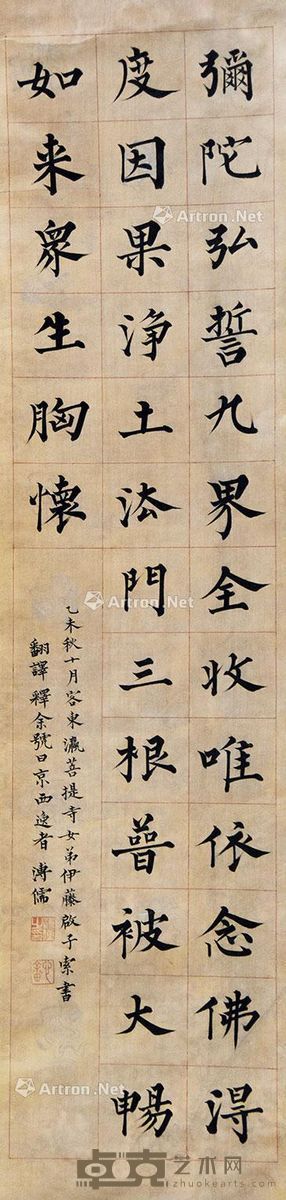 彌陀弘誓九界全收唯依念佛得
度因果淨土法門三根普被大暢
如来眾生胸懷
乙未秋十月客東瀛菩提寺女弟伊藤啟子索書
翻譯釋余號曰京西逸者 溥儒
Artron.Net
Artron.Net
Artron.Net
Artron.Net
卓克艺术网
zhuokearts.com